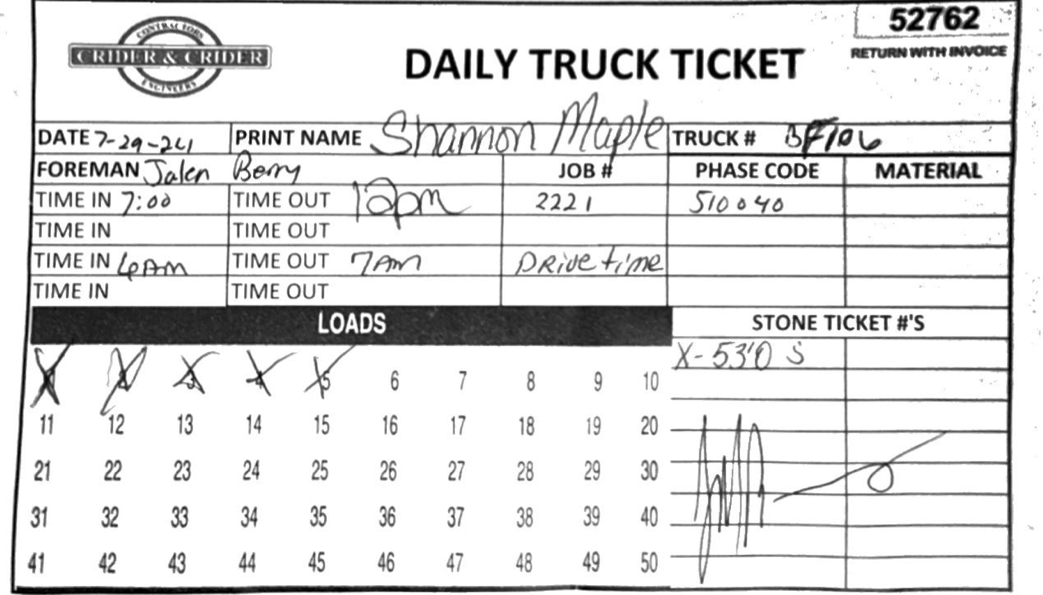 CONTRACTORS
CRIDER & CRIDER
ENGINEERS
DAILY TRUCK TICKET
52762
RETURN WITH INVOICE
DATE 7-29-24 PRINT NAME Shannon Maple TRUCK # BF106
FOREMAN Jalen Berry JOB # PHASE CODE MATERIAL
TIME IN 7:00 TIME OUT 12pm 2221 510040
TIME IN TIME OUT
TIME IN 6AM TIME OUT 7AM Drive time
TIME IN TIME OUT
LOADS STONE TICKET #'S
X-530 S
1 2 3 4 5 6 7 8 9 10
11 12 13 14 15 16 17 18 19 20
21 22 23 24 25 26 27 28 29 30
31 32 33 34 35 36 37 38 39 40
41 42 43 44 45 46 47 48 49 50